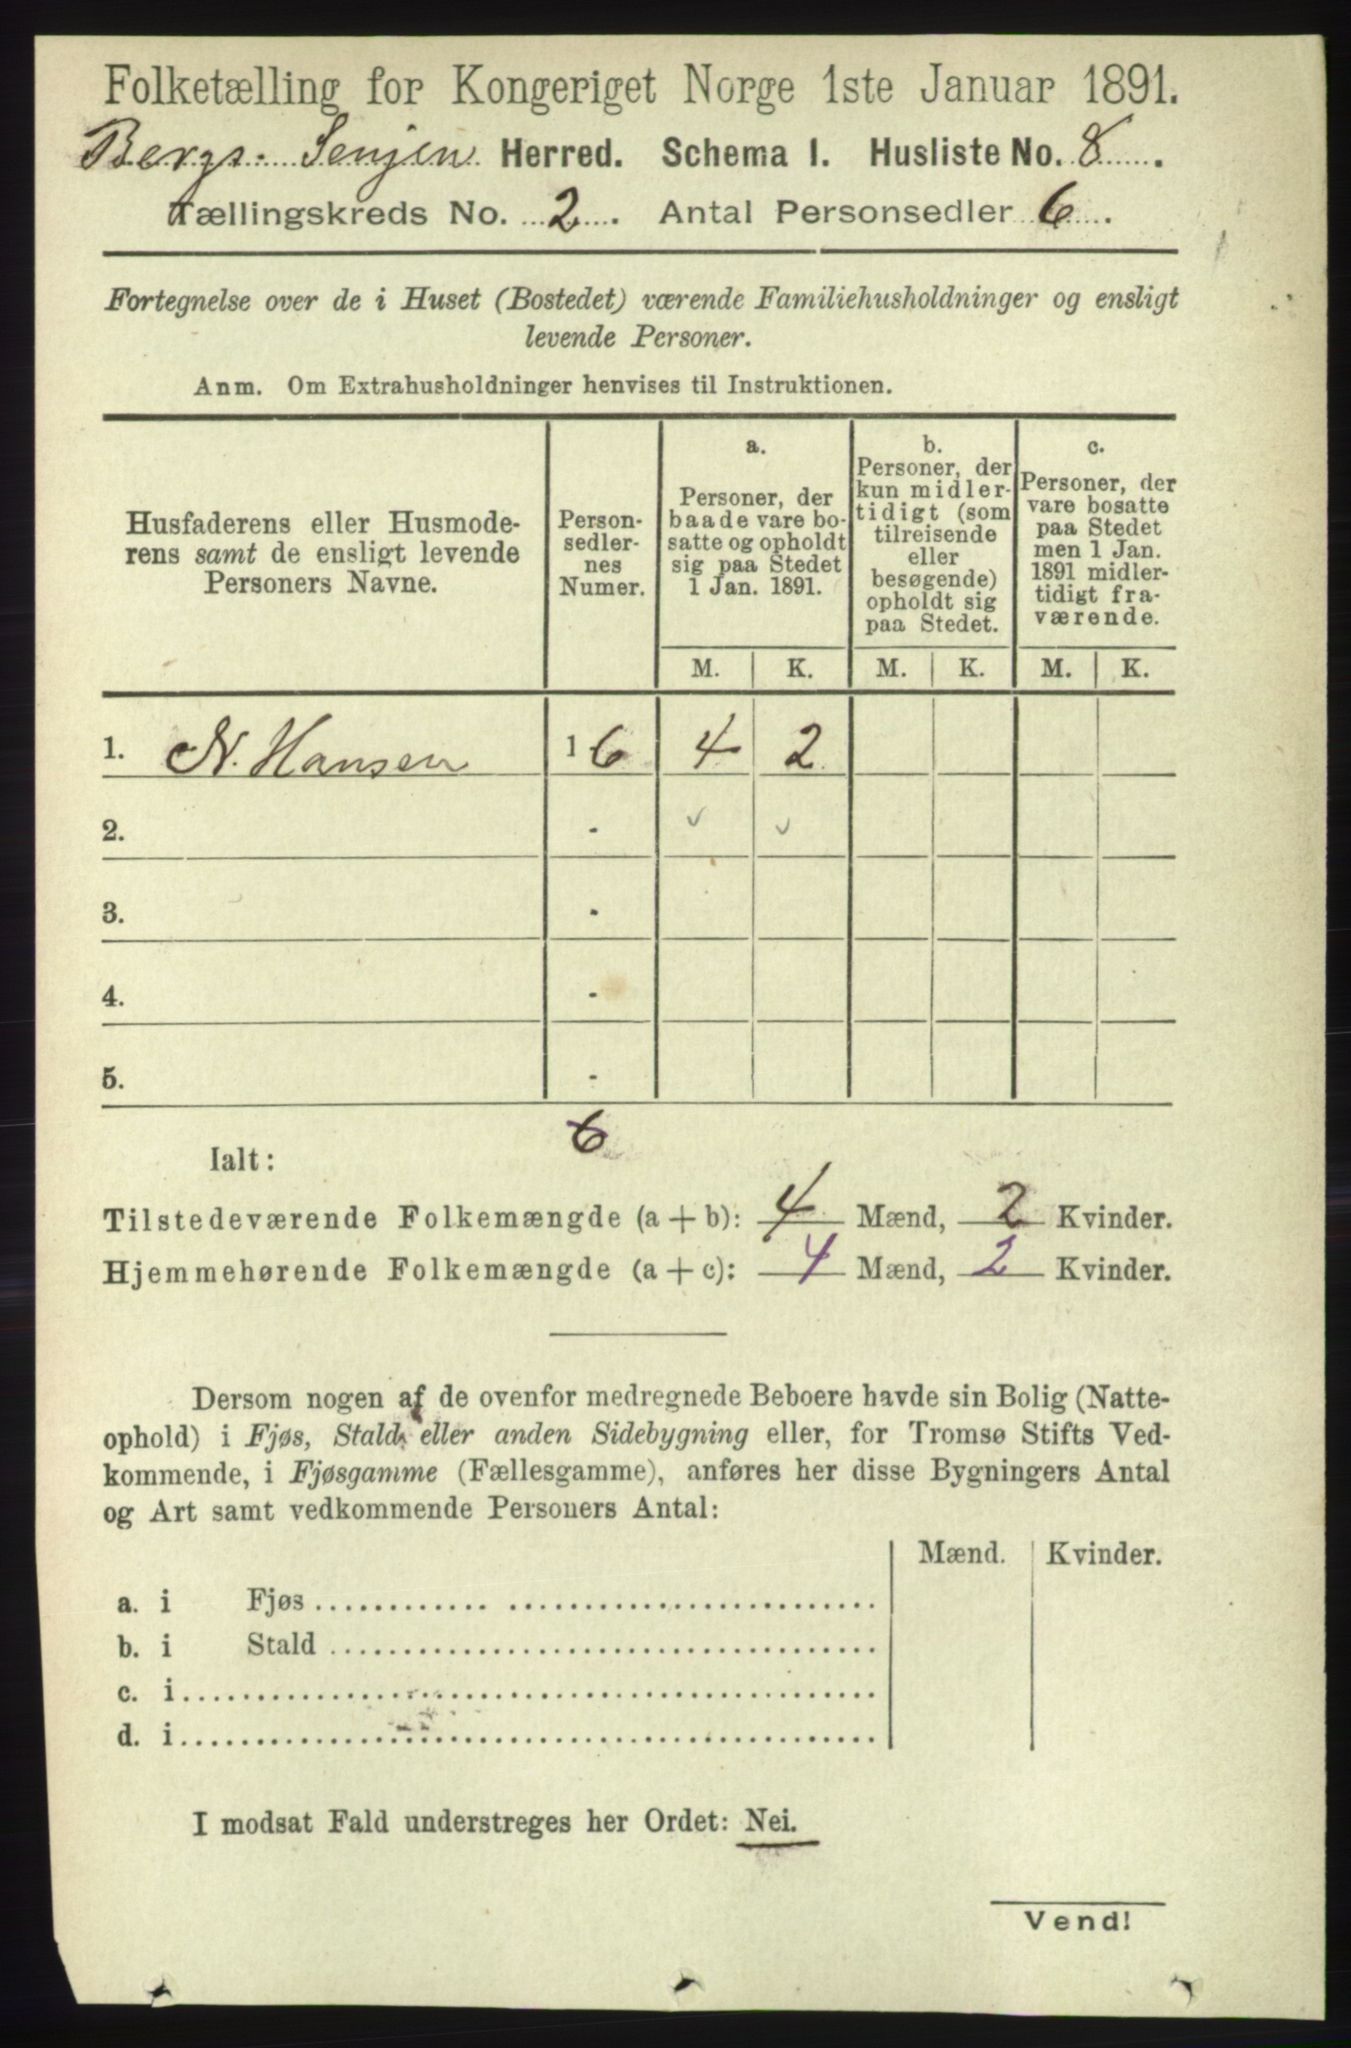 Folketælling for Kongeriget Norge 1ste Januar 1891.
Bergs. Senjen Herred. Schema I. Husliste No. 8.
Tællingskreds No. 2. Antal Personsedler 6.
Fortegnelse over de i Huset (Bostedet) værende Familiehusholdninger og ensligt
levende Personer.
Anm. Om Extrahusholdninger henvises til Instruktionen.
Husfaderens eller Husmode-
rens samt de ensligt levende
Personers Navne.
Person-
sedler-
nes
Numer.
a.
Personer, der
baade vare bo-
satte og opholdt
sig paa Stedet
1 Jan. 1891.
b.
Personer, der
kun midler-
tidigt (som
tilreisende
eller
besøgende)
opholdt sig
paa Stedet.
c.
Personer, der
vare bosatte
paa Stedet
men 1 Jan.
1891 midler-
tidigt fra-
værende.
M. K. M. K. M. K.
1. N. Hansen 1-6 4 2
2. -
3. -
4. -
5. -
6
Ialt:
Tilstedeværende Folkemængde (a + b): 4 Mænd, 2 Kvinder.
Hjemmehørende Folkemængde (a + c): 4 Mænd, 2 Kvinder.
Dersom nogen af de ovenfor medregnede Beboere havde sin Bolig (Natte-
ophold) i Fjøs, Stald eller anden Sidebygning eller, for Tromsø Stifts Ved-
kommende, i Fjøsgamme (Fællesgamme), anføres her disse Bygningers Antal
og Art samt vedkommende Personers Antal:
Mænd. Kvinder.
a. i Fjøs
b. i Stald
c. i
d. i
I modsat Fald understreges her Ordet: Nei.
Vend!